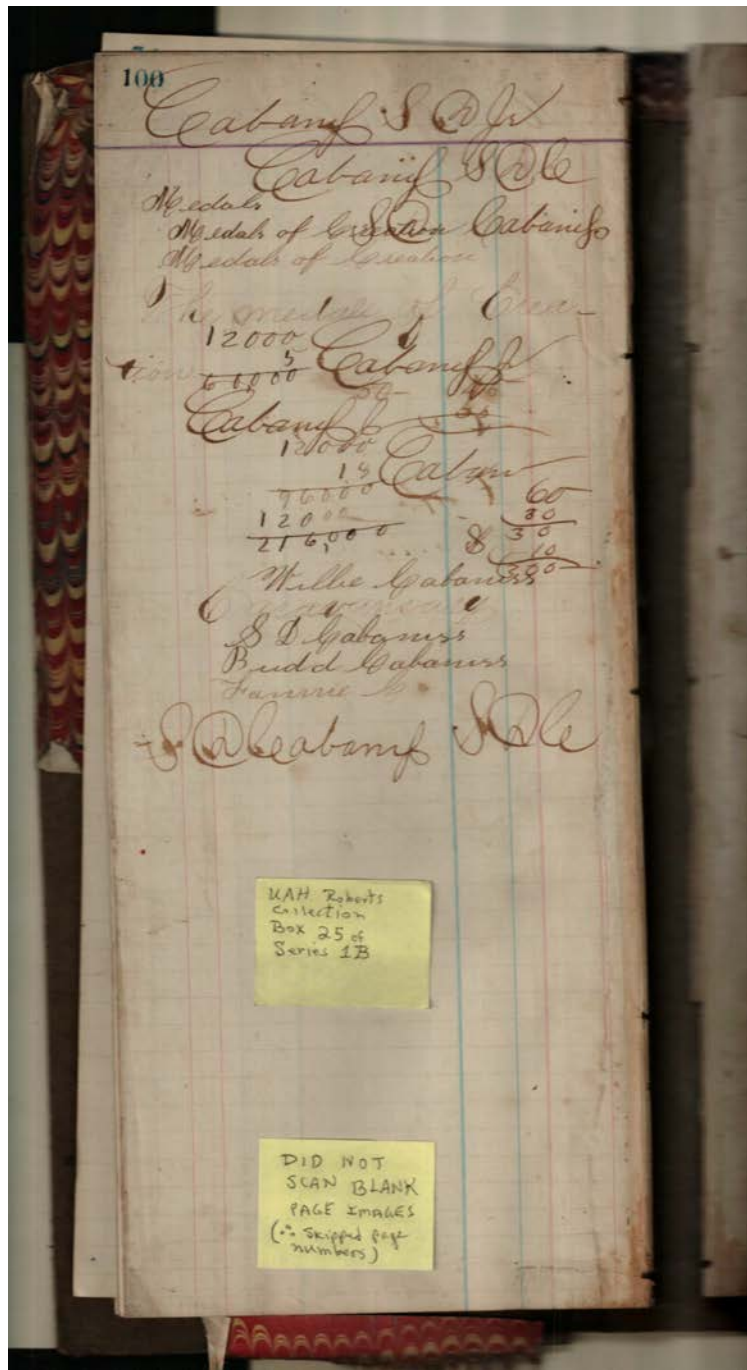 100
Cabaniss S D Jr
Cabaniss S D C
Medals
Medals of Creation S D Cabaniss
Medals of Creation
The medals of Crea-
12000
5
tion 60000 Cabaniss Jr
50
Cabaniss
12000
18
96000
12000
216,000
60
30
30
$ 10
300
Willie Cabaniss
S D Cabaniss
Budd Cabaniss
Fannie C
S D Cabaniss S D C
UAH Roberts
Collection
Box 25 of
Series 1B
DID NOT
SCAN BLANK
PAGE IMAGES
(∴ Skipped page
numbers)